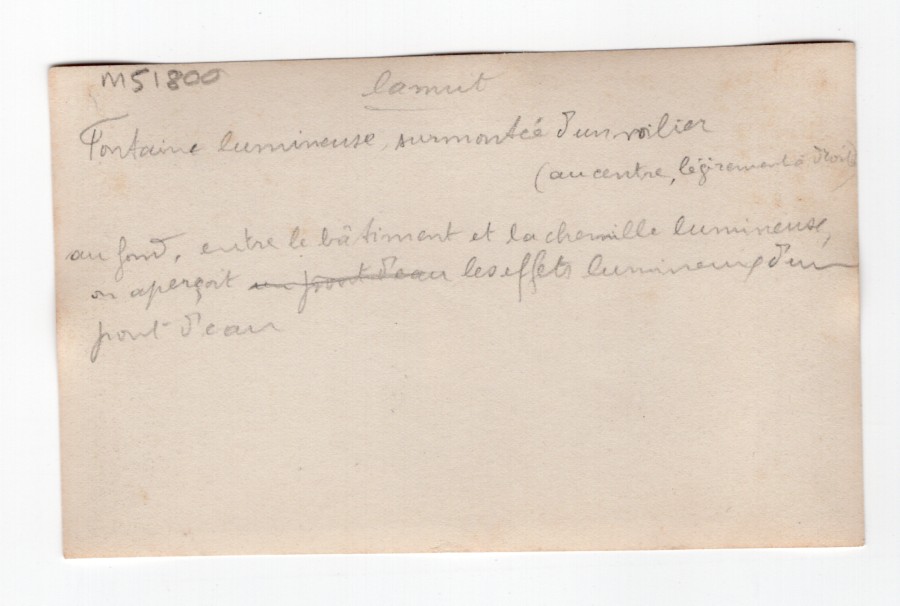 M51800
la nuit
Fontaine lumineuse, surmontée d'un voilier
(au centre, légèrement à droite)
au fond, entre le bâtiment et la chenille lumineuse,
on aperçoit un pont d'eau les effets lumineux d'un
pont d'eau